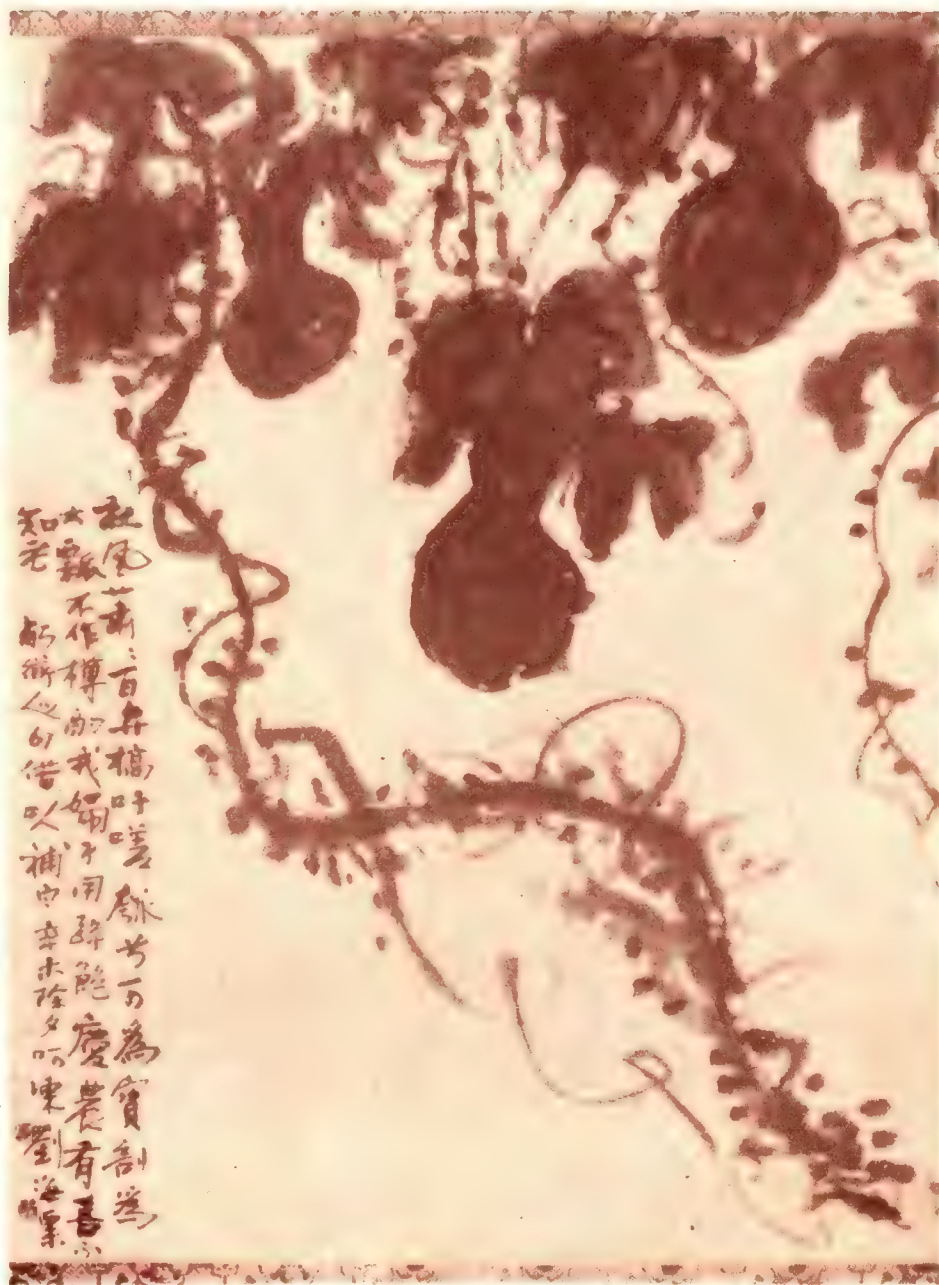 秋風蕭〻百卉槁吁嗟瓠兮可為寶剖為
大瓢不作樽酌我婦子用醉飽慶農有喜不
知老 仙句借以補白辛未除夕呵凍劉海粟